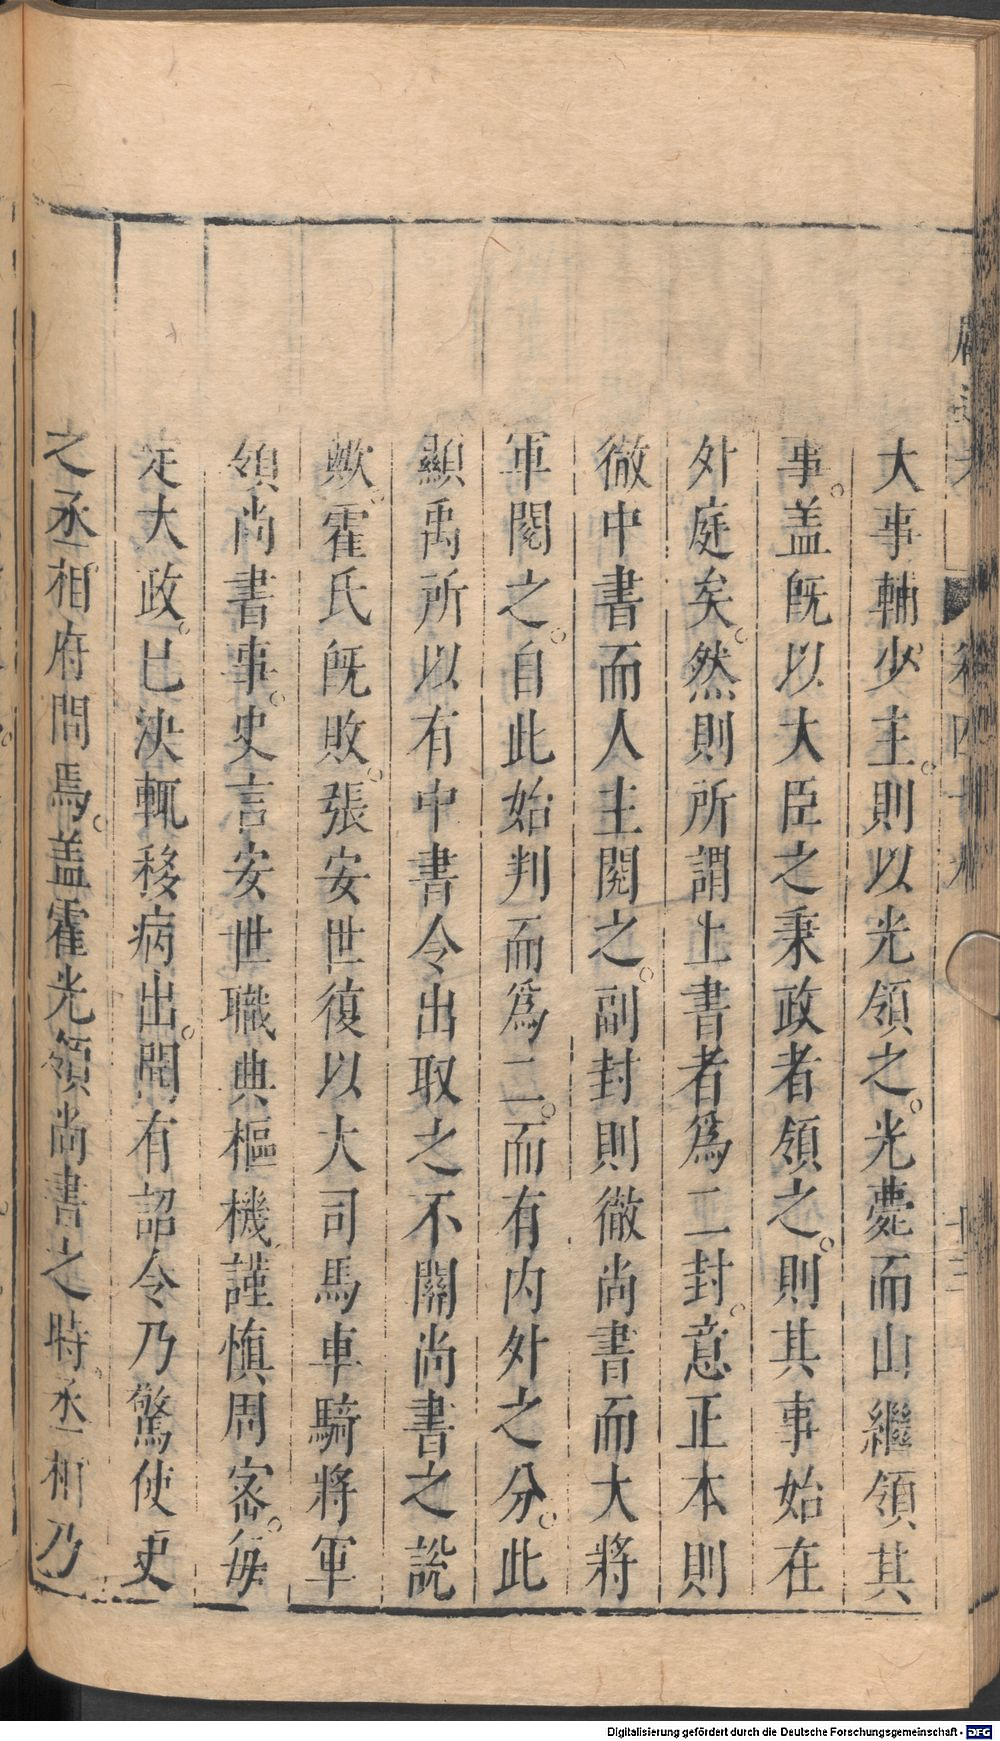 大事輔少主。則以光領之。光薨而山繼領其
事。盖旣以大臣之秉政者領之。則其事始在
外庭矣。然則所謂上書者爲二封。意正本則
徹中書而人主閱之。副封則徹尚書而大將
軍閱之。自此始判而爲二。而有內外之分。此
顯禹所以有中書令出取之不關尚書之說
歟。霍氏旣敗。張安世復以大司馬車騎將軍
領尚書事。史言安世職典樞機謹愼周密。每
定大政。已決輒移病出。聞有詔令乃驚使吏
之丞相府問焉。盖霍光領尚書之時。丞相乃
Digitalisierung gefördert durch die Deutsche Forschungsgemeinschaft - DFG